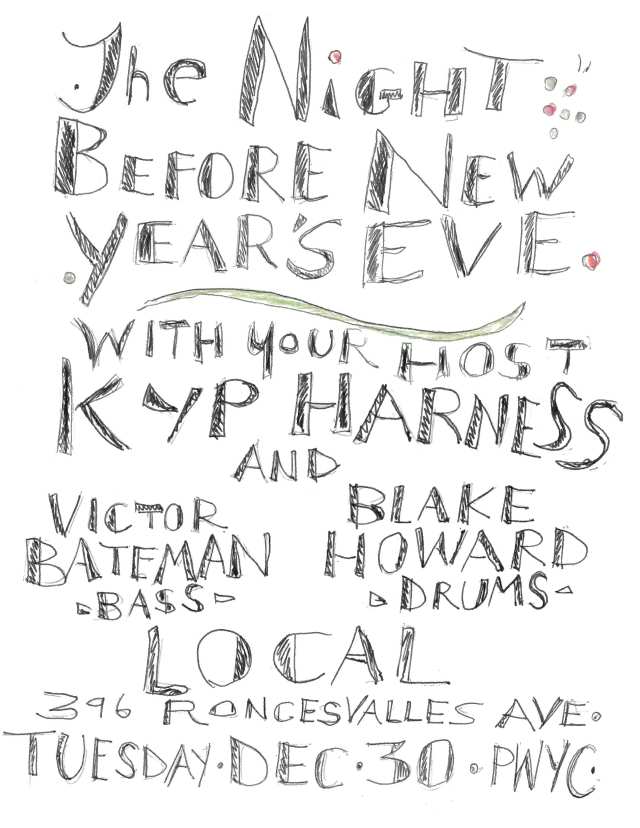 The NiGHT
BEFORE NEW
YEAR'S EVE.
WITH YOUR HOST
KYP HARNESS
AND
VICTOR
BATEMAN
BASS
BLAKE
HOWARD
DRUMS
LOCAL
396 RONCESVALLES AVE.
TUESDAY·DEC·30·PWYC.